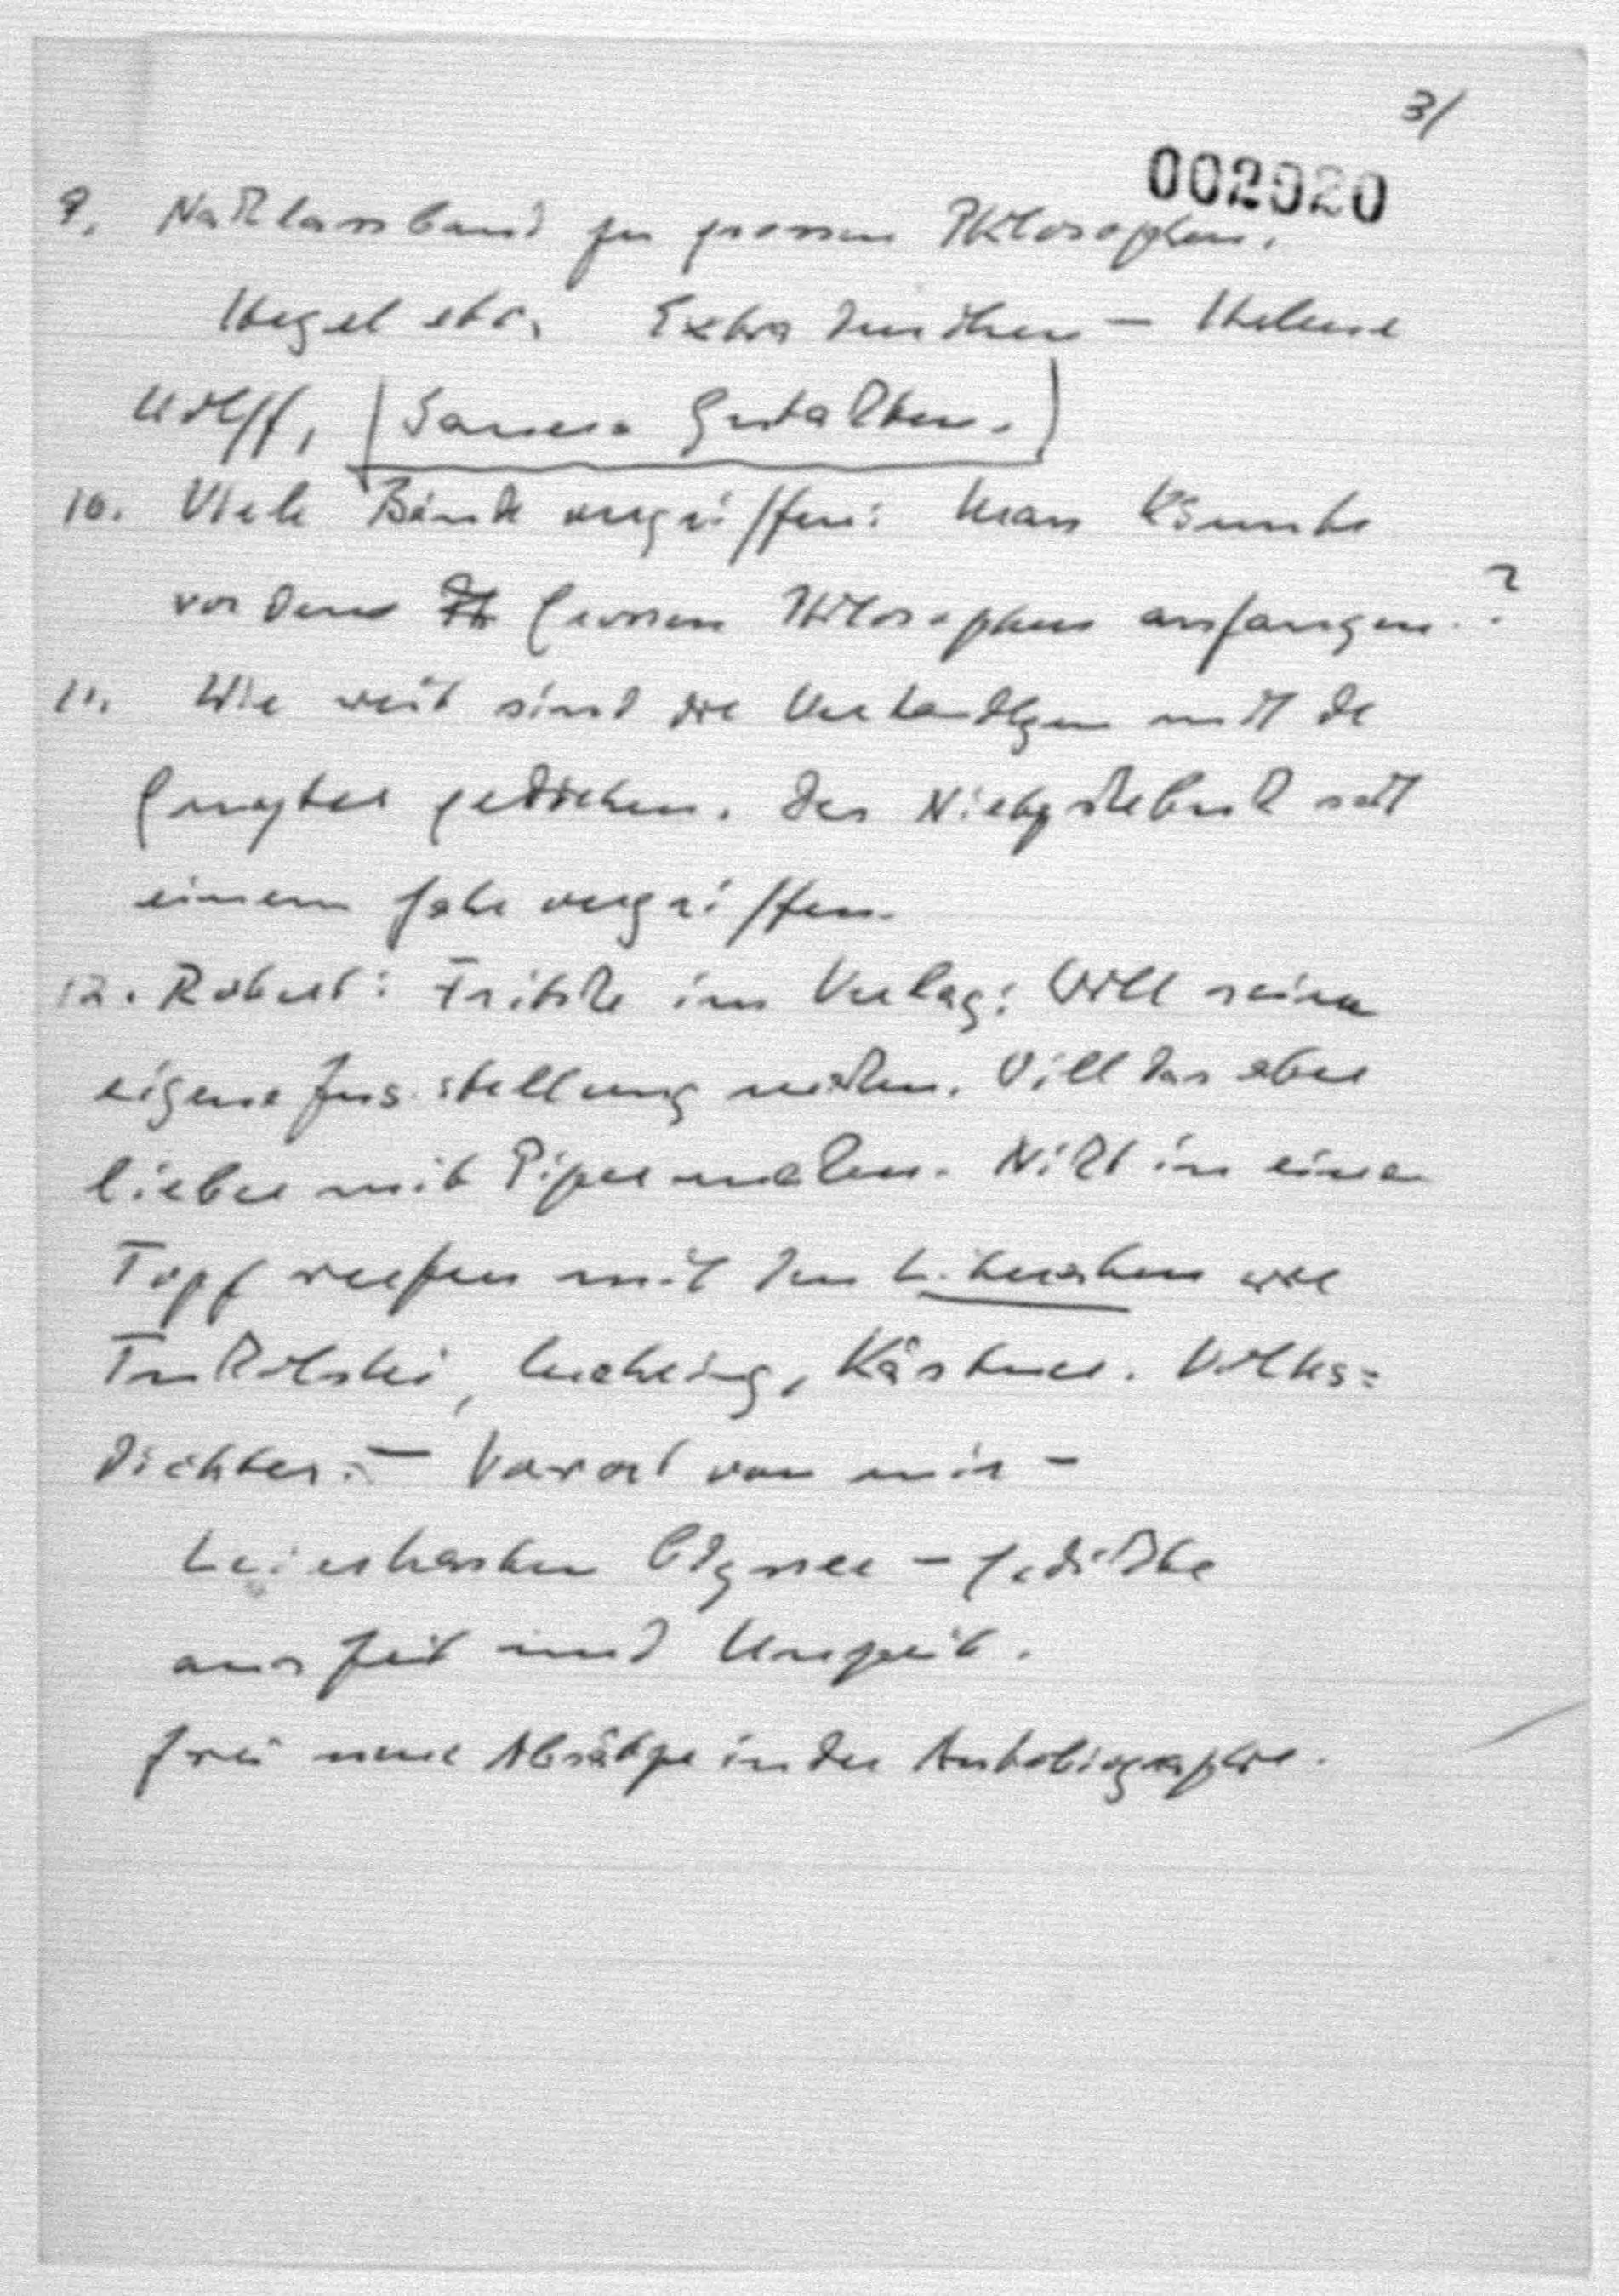 3/
002920
9. Nachlassband zu grossen Philosophen.
Hegel etc. Extra drucken – Helene
Wolff, Gestalten.
10. Viele Bände vergriffen: Man könnte
vor dem Grossen Philosophen anfangen?
11. Wie weit sind die Verhandlgen mit de
Gruyter gediehen. Das Nietzschebuch seit
einem Jahr vergriffen.
12. Robert: im Verlag: Will seine
eigene Zus.stellung machen. Will das aber
lieber mit Piper machen. Nicht in einen
Topf werfen mit den Literaten wie
Tucholski, Mehring, Kästner. Volks=
dichter. – Vorwort von mir –
Leierkasten Odyssee – Gedichte
aus Zeit und Unzeit.
Zwei neue Absätze in der Autobiographie.